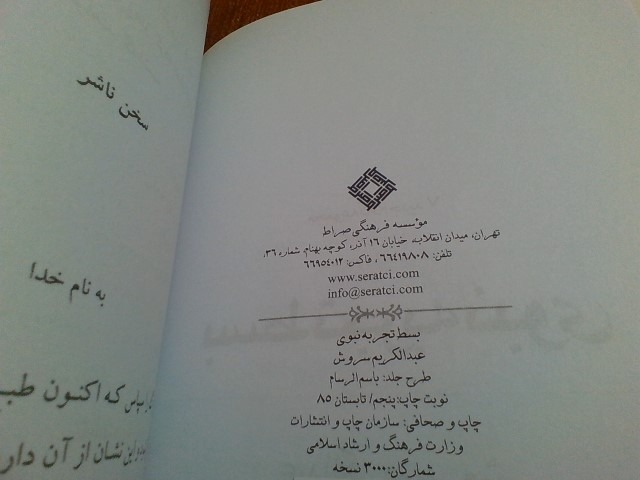 مؤسسه فرهنگی صراط
تهران، میدان انقلاب، خیابان ۱۶ آذر، کوچه بهنام، شماره ۳۶.
تلفن: ۶۶۴۱۹۸۰۸ ، فاکس: ۶۶۹۵۴۰۱۲
www.seratci.com
info@seratci.com
بسط تجربه نبوی
عبدالکریم سروش
طرح جلد: باسم الرسام
نوبت چاپ: پنجم/ تابستان ۸۵
چاپ و صحافی: سازمان چاپ و انتشارات
وزارت فرهنگ و ارشاد اسلامی
شمارگان: ۳۰۰۰ نسخه
سخن ناشر
به نام خدا
سپاس که اکنون طب
این نشان از آن دار